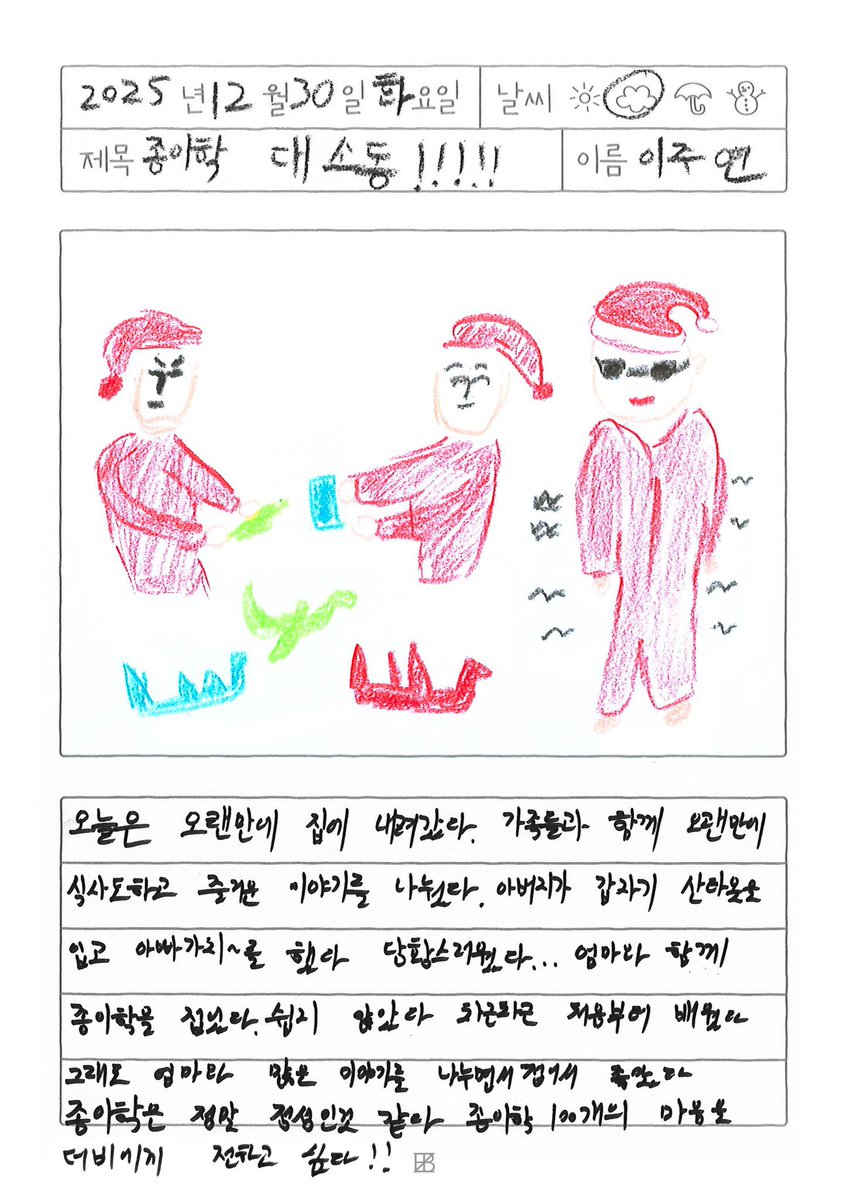 2025년 12월 30일 화요일 날씨
제목 종이학 대소동!!!!! 이름 이주연
오늘은 오랜만에 집에 내려갔다. 가족들과 함께 오랜만에
식사도하고 즐거운 이야기를 나눴다. 아버지가 갑자기 산타옷을
입고 아빠가취~를 했다 당황스러웠다... 엄마와 함께
종이학을 접었다. 쉽지 않았다 차근차근 처음부터 배웠다
그래도 엄마와 많은 이야기를 나누면서 접어서 좋았다
종이학은 정말 정성인것 같아 종이학 100개의 마음을
더비에게 전하고 싶다!!